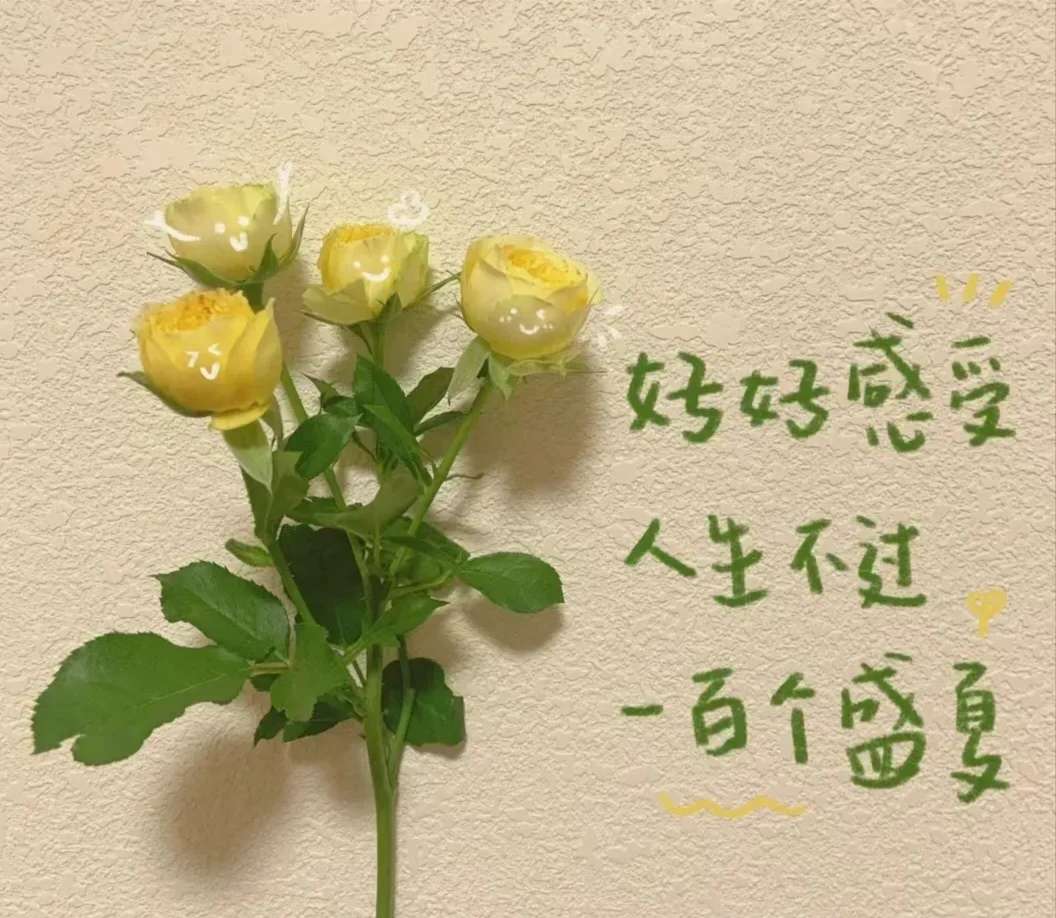 好好感受
人生不过
一百个盛夏